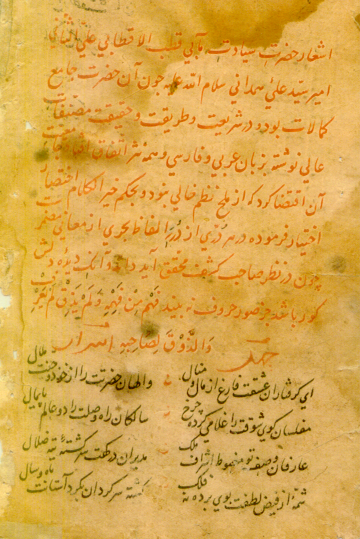 اشعار حضرت سیادت مآبی قطب الاقطابی علی الثانی
امیر سید علی همدانی سلام الله علیه چون آن حضرت جامع
کمالات بود و در شریعت و طریقت و حقیقت مصنفات
عالی نوشته بزبان عربی و فارسی و همه نثر اتفاق افتاد
آن اقتضا کرد که از ملح نظم خالی نبود و بحکم خیر الکلام
اختیار فرموده در هر دُرّی از دُرَرِ الفاظ بحری از معانی مضمر
چون در نظر صاحب کشف محقق آید داند و آنک دیده دلش
کور باشد جز صور حروف نه بیند فَهِمَ مَن فَهِمَ وَلَم یَذُق لَم یَعرِف
وَالذَّوقُ لِصاحِبِهِ
ای گرفتاران عشقت فارغ از مال و منال والهان حضرتت را از خود و جنت ملال
مفلسان کوی شوقت را غلامی کرده چرخ سالکان راه وصلت را دو عالم پایمال
عارفان وصف تو ملک مدبران درگهت سرگشته تیه ضلال
شمه از فیض لطفت بوی برده نه فلک گشته سرگردان بگرد آستانت ماه و سال